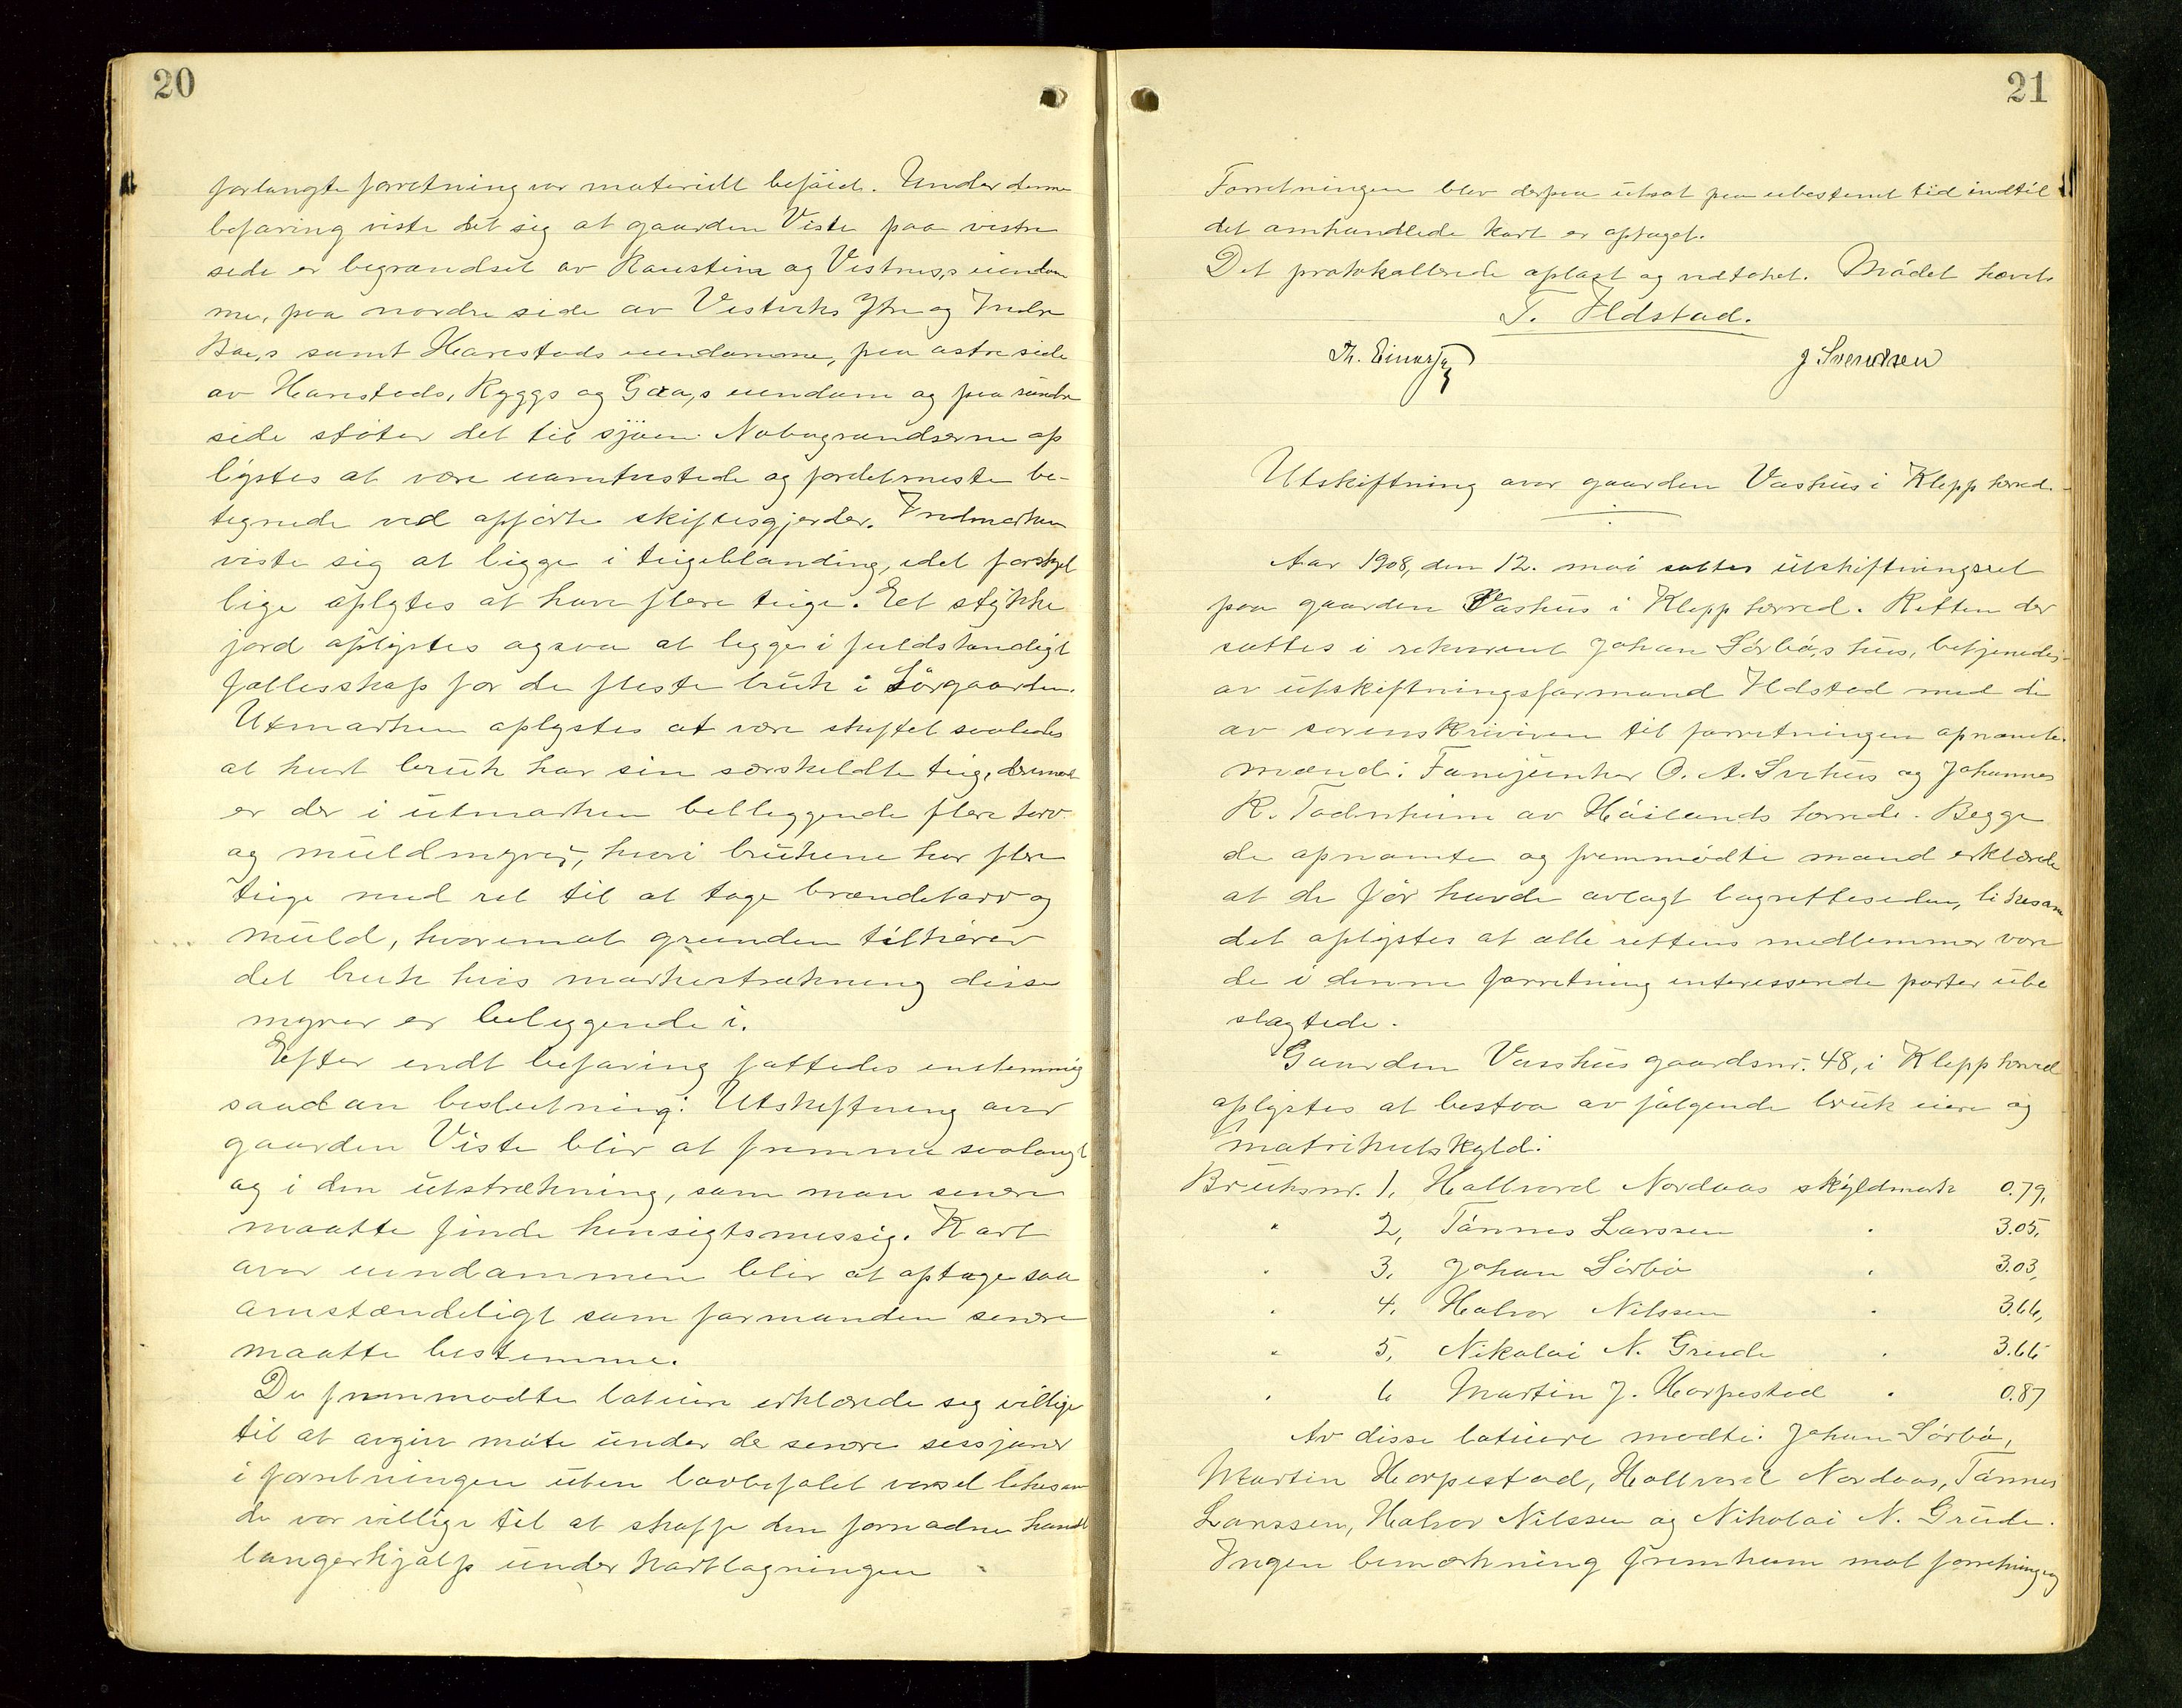 20
forlangte forretning var materielt beføiet. Under denne
befaring viste det sig at gaarden Viste paa vestre
side er begrændset av Raustein og Vistnes,s eiendom
me, paa nordre side av Vistviks Ytre og Indre
Bøe,s samt Harestads eiendomme, paa østre side
av Harestads, Ryggs og Goa,s eiendom og paa søndre
side støter det til sjøen. Nabogrændserne op
lystes at være uomtvistede og fordetmeste be-
tegnede ved opførte skiftesgjerder. Indmarken
viste sig at ligge i teigeblanding, idet forskjel
lige oplystes at have flere teige. Eet stykke
jord oplystes ogsaa at ligge i fuldstændigt
fællesskap for de fleste bruk i Sørgaarden.
Utmarken oplystes at være skiftet saaledes
at hvert bruk har sin særskildte teig, derimot
er der i utmarken beliggende flere torv
og muldmyrer, hvori brukene har flere
teige med ret til at tage brændetorv og
muld, hvorimot grunden tilhører
det bruk hvis markestrækning disse
myrer er beliggende i.
Efter endt befaring fattedes enstemmig
saadan beslutning: Utskiftning over
gaarden Viste blir at fremme saalangt
og i den utstrækning, som man senere
maatte finde hensigtsmessig. Kart
over eiendommen blir at optage saa
omstændeligt som formanden senere
maatte bestemme.
De fremmødte lodeiere erklærede sig villige
til at avgive møte under de senere sessjoner
i forretningen uten lovbefalet varsel likesom
de var villige til at skaffe den fornødne hand
langerhjælp under kartlagningen
21
Forretningen blev derpaa utsat paa ubestemt tid indtil
det omhandlede kart er optaget.
Det protokollerede oplæst og vedtaket. Mødet hævet.
T. Ildstad.
Th. Einarsen J Svendsen
Utskiftning over gaarden Vashus i Klepp herred.
Aar 1908, den 12. mai sattes utskiftningsret
paa gaarden Vashus i Klepp herred. Retten der
sattes i rekvirent Johan Sørbø,s hus, betjenedes
av utskiftningsformand Ildstad med de
av sorenskriveren til forretningen opnævnte
mænd: Fanejunker O. A. Svihus og Johannes
R. Todneheim av Høilands herrede. Begge
de opnævnte og fremmødte mænd erklærede
at de før havde avlagt lagretteseden, likesom
det oplystes at alle rettens medlemmer vare
de i denne forretning interesserede parter ube
slægtede.
Gaarden Vasshus gaardsnr. 48, i Klepp herred
oplystes at bestaa av følgende bruk eiere og
matrikulskyld:
Bruksnr. 1. Hallvard Nordaas skyldmark 0.79,
" 2, Tønnes Larssen " 3.05,
" 3. Johan Sørbø " 3.03,
" 4. Halvor Nilssen " 3.66,
" 5, Nikolai N. Grude " 3.66
" 6 Martin J. Horpestad " 0.87
Av disse lodeiere mødte: Johan Sørbø,
Martin Horpestad, Hallvard Nordaas, Tønnes
Larssen, Halvor Nilssen og Nikolai N. Grude.
Ingen bemærkning fremkom mot forretningen